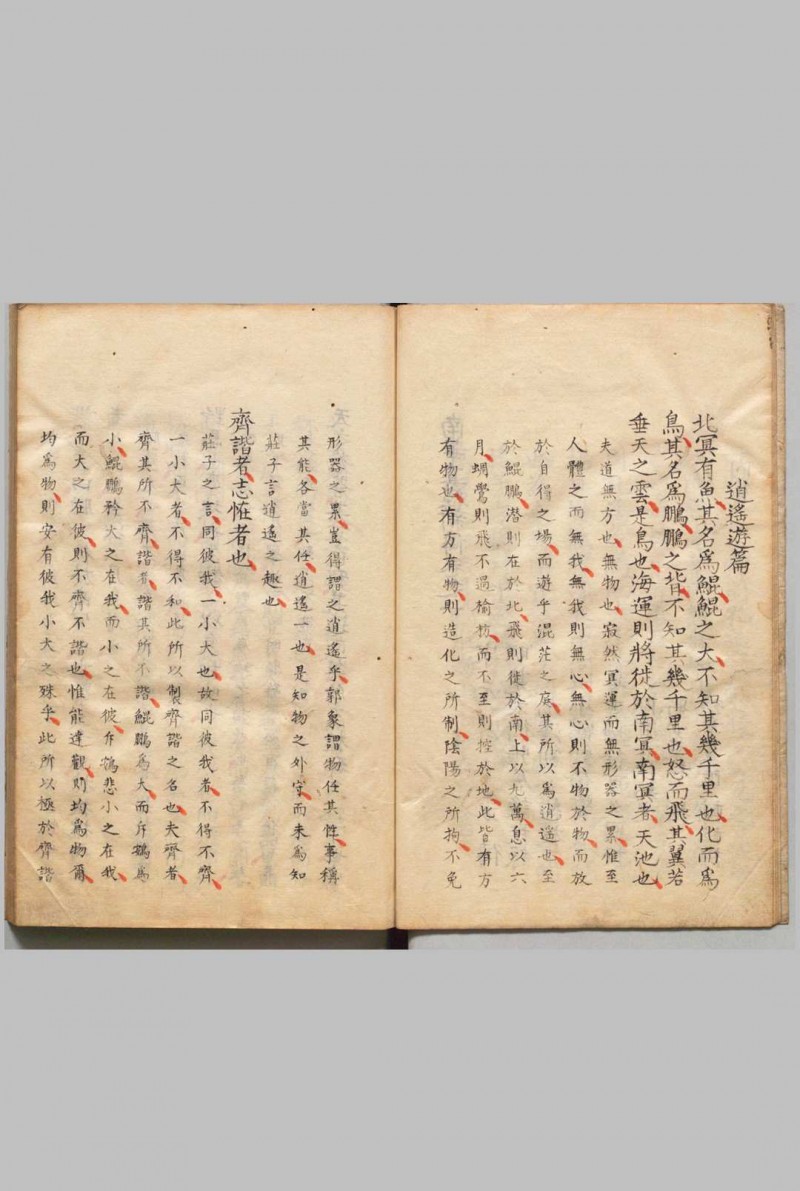 逍遙遊篇
北冥有魚其名為鯤鯤之大不知其幾千里也化而為
鳥其名為鵬鵬之背不知其幾千里也怒而飛其翼若
垂天之雲是鳥也海運則將徙於南冥南冥者天池也
夫道無方也無物也寂然冥運而無形器之累惟至
人體之而無我無我則無心無心則不物於物而放
於自得之場而遊乎混茫之庭其所以為逍遙也至
於鯤鵬潛則在於北飛則徙於南上以九萬息以六
月蜩鷽則飛不過榆枋而不至則控於地此皆有方
有物也有方有物則造化之所制陰陽之所拘不免
形器之累豈得謂之逍遙乎郭象謂物任其性事稱
其能各當其任逍遙一也是知物之外守而未為知
莊子言逍遙之趣也
齊諧者志恠者也
莊子之言同彼我一小大也故同彼我者不得不齊
一小大者不得不和此所以製齊諧之名也夫齊者
齊其所不齊諧者諧其所不諧鯤鵬為大而斥鷃為
小鯤鵬矜大之在我而小之在彼斥鷃悲小之在我
而大之在彼則不齊不諧也惟能達觀則均為物爾
均為物則安有彼我小大之殊乎此所以極於齊諧